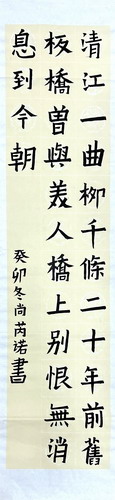 清江一曲柳千條二十年前舊
板橋曾與美人橋上別恨無消
息到今朝
癸卯冬尚芮諾書